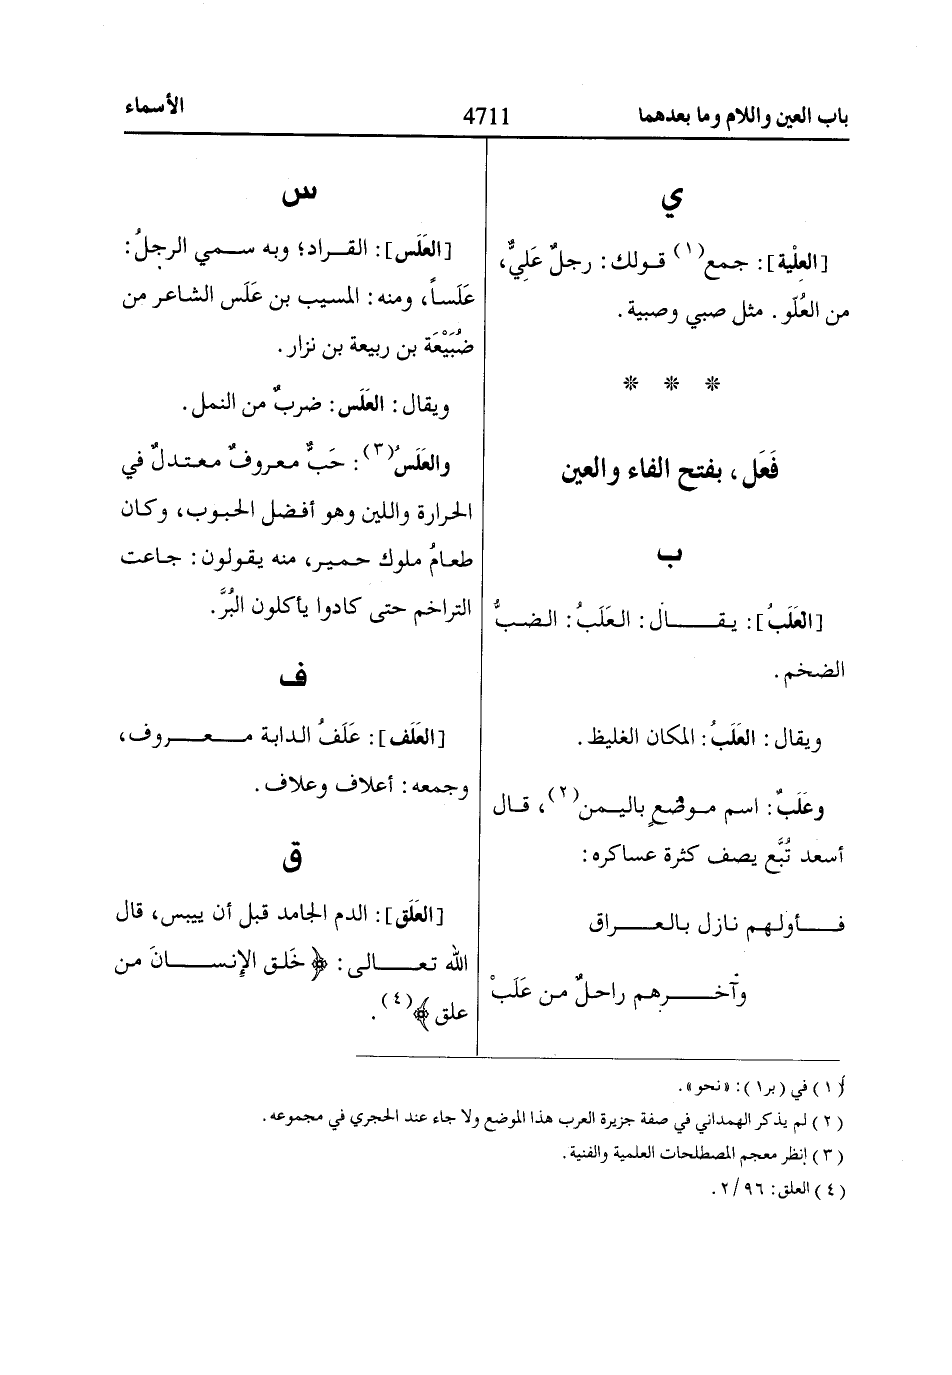 باب العين واللام وما بعدهما
4711
الأسماء
ي
[العِلْية]: جمع(١) قولك: رجلٌ عَلِيٌّ،
من العُلّو. مثل صبي وصبية.
* * *
فَعَل، بفتح الفاء والعين
ب
[العَلَبُ]: يقـــال: العَلَبُ: الضبُّ
الضخم.
ويقال: العَلَبُ: المكان الغليظ.
وعَلَبٌ: اسم موضعٍ باليمن(٢)، قال
أسعد تُبَّع يصف كثرة عساكره:
فـــأولهم نازل بالعـــراق
وآخـــرهم راحلٌ من عَلَبْ
س
[العَلَس]: القراد؛ وبه سمي الرجلُ:
عَلَساً، ومنه: المسيب بن عَلَس الشاعر من
ضُبَيْعَة بن ربيعة بن نزار.
ويقال: العَلَس: ضربٌ من النمل.
والعَلَسُ(٣): حَبٌّ معروفٌ معتدلٌ في
الحرارة واللين وهو أفضل الحبوب، وكان
طعامُ ملوك حمير، منه يقولون: جاعت
التراخم حتى كادوا يأكلون البُرَّ.
ف
[العَلَف]: عَلَفُ الدابة معـــروف،
وجمعه: أعلاف وعلاف.
ق
[العَلَق]: الدم الجامد قبل أن ييبس، قال
الله تعـــالى: ﴿ خَلق الإنســـانَ من
علق ﴾(٤).
(١) في (بر١): «نحو».
(٢) لم يذكر الهمداني في صفة جزيرة العرب هذا الموضع ولا جاء عند الحجري في مجموعه.
(٣) إنظر معجم المصطلحات العلمية والفنية.
(٤) العلق: ٩٦/ ٢.